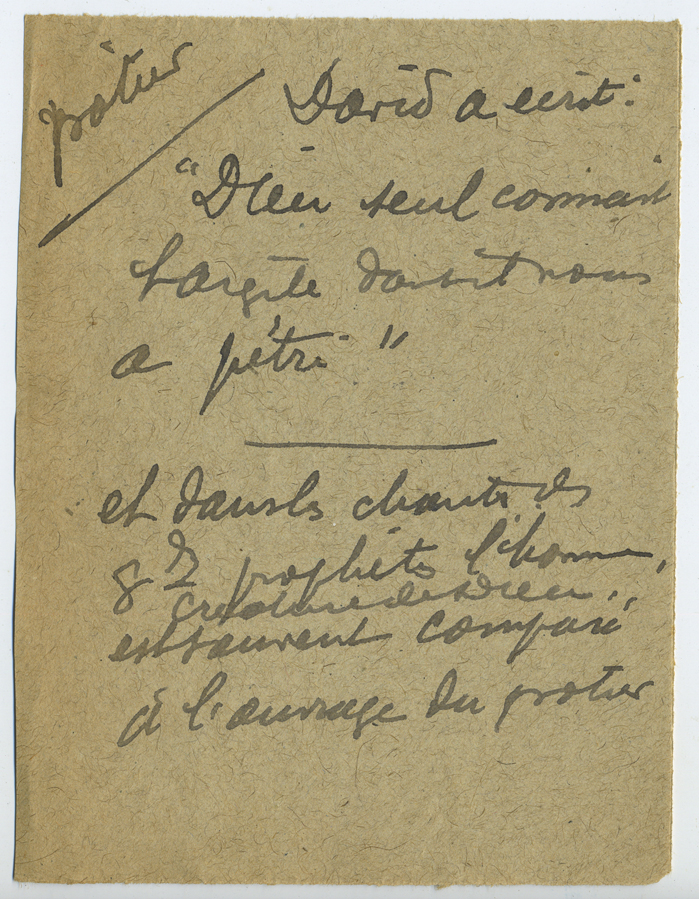 potier
David a écrit:
"Dieu seul connait
l'argile dont il nous
a pétri"
et dans les chants des
gds prophètes l'homme,
créature de Dieu,
est souvent comparé
à l'ouvrage du potier